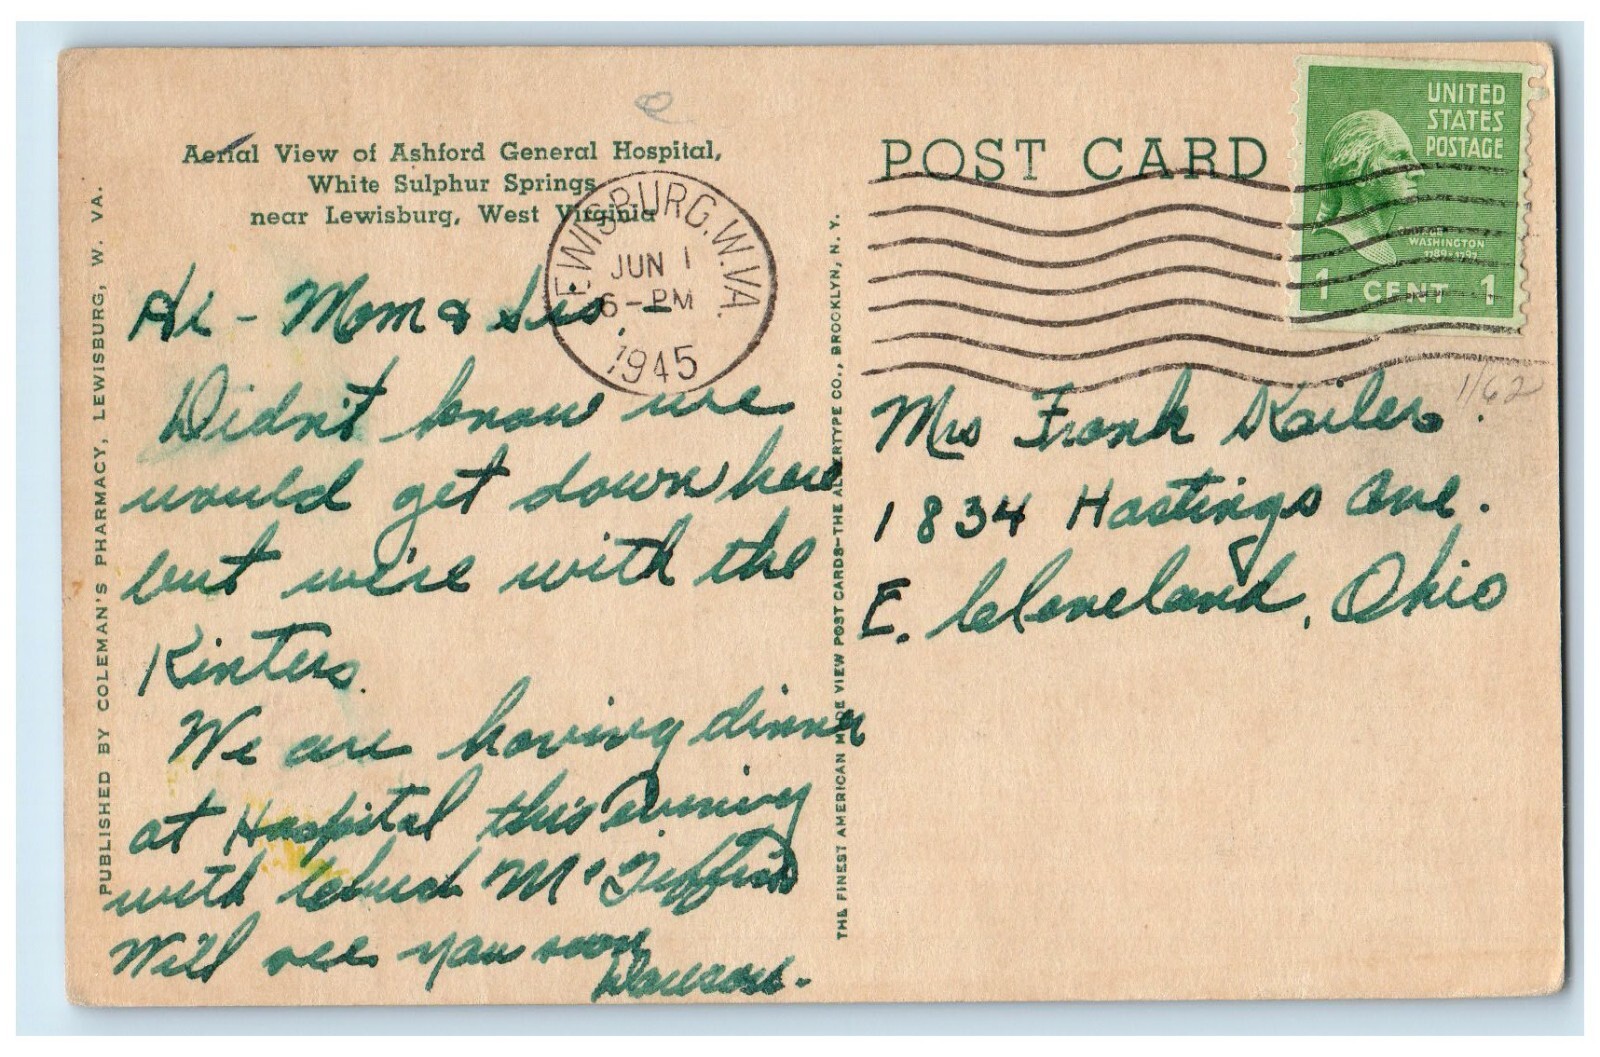 Aerial View of Ashford General Hospital,
White Sulphur Springs
near Lewisburg, West Virginia
LEWISBURG.W.VA.
JUN 1
6-PM
1945
POST CARD
UNITED
STATES
POSTAGE
WASHINGTON
1789-1797
1 CENT 1
1/62
PUBLISHED BY COLEMAN'S PHARMACY, LEWISBURG, W. VA.
Hi - Mom & Sis,
Didn't know we
would get down here
but we're with the
Kinters.
We are having dinner
at Hospital this evening
with Chuck Mc Tiffins
We'll see you soon
THE FINEST AMERICAN MADE VIEW POST CARDS-THE ALBERTYPE CO., BROOKLYN, N. Y.
Mrs Frank
1834 Hastings Ave.
E. Cleveland, Ohio